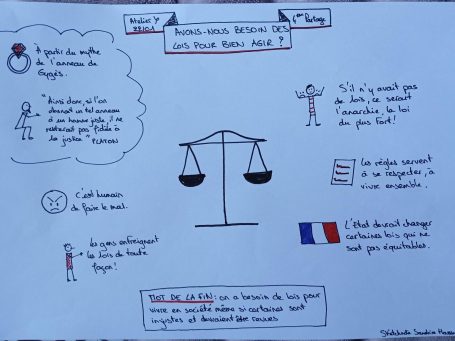 Atelier
AVONS-NOUS BESOIN DES
LOIS POUR BIEN AGIR ?
Partage
À partir du mythe
de l'anneau de
Gygès.
"Ainsi donc, si l'on
donnait un tel anneau
à un homme juste, il ne
resterait pas fidèle à
la justice" PLATON
C'est humain
de faire le mal.
Les gens enfreignent
les lois de toute
façon!
S'il n'y avait pas
de lois, ce serait
l'anarchie, la loi
du plus fort!
Les règles servent
à se respecter, à
vivre ensemble.
L'État devrait changer
certaines lois qui ne
sont pas équitables.
MOT DE LA FIN : on a besoin de lois pour
vivre en société même si certaines sont
injustes et devraient être revues
Sandrine